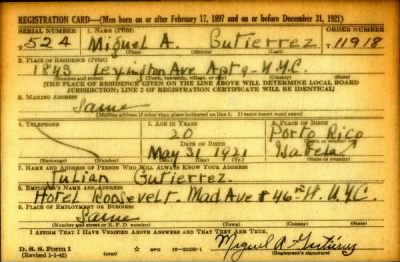 REGISTRATION CARD—(Men born on or after February 17, 1897 and on or before December 31, 1921)
SERIAL NUMBER 1. NAME (Print) ORDER NUMBER
524 Miguel A. Gutierrez 11918
(First) (Middle) (Last)
2. PLACE OF RESIDENCE (Print)
1843 Lexington Ave Apt 9. N.Y.C.
(Number and street) (Town, township, village, or city) (County) (State)
[THE PLACE OF RESIDENCE GIVEN ON THE LINE ABOVE WILL DETERMINE LOCAL BOARD
JURISDICTION; LINE 2 OF REGISTRATION CERTIFICATE WILL BE IDENTICAL]
3. MAILING ADDRESS
Same
[Mailing address if other than place indicated on line 2. If same insert word same]
4. TELEPHONE 5. AGE IN YEARS 6. PLACE OF BIRTH
20 Porto Rico
DATE OF BIRTH
May 31, 1921 Isabela
(Exchange) (Number) (Mo.) (Day) (Yr.) (State or country)
7. NAME AND ADDRESS OF PERSON WHO WILL ALWAYS KNOW YOUR ADDRESS
Julian Gutierrez
8. EMPLOYER'S NAME AND ADDRESS
Hotel Roosevelt. Mad Ave & 46th N.Y.C.
9. PLACE OF EMPLOYMENT OR BUSINESS
Same
(Number and street or R. F. D. number) (Town) (County) (State)
I AFFIRM THAT I HAVE VERIFIED ABOVE ANSWERS AND THAT THEY ARE TRUE.
D. S. S. Form 1
(Revised 1-1-42) GPO Miguel A. Gutierrez
(Registrant's signature)